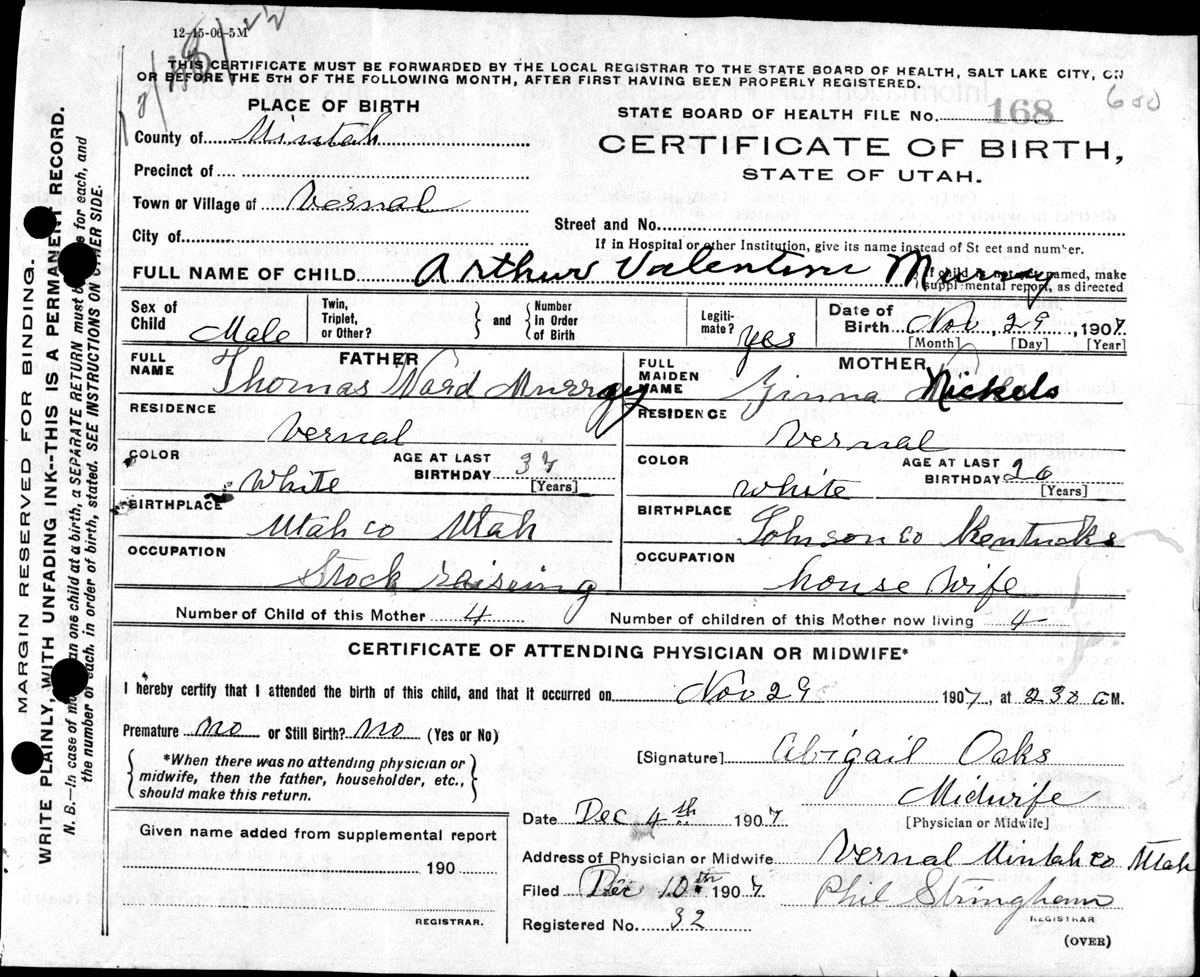 12-15-06-5M
THIS CERTIFICATE MUST BE FORWARDED BY THE LOCAL REGISTRAR TO THE STATE BOARD OF HEALTH, SALT LAKE CITY, ON
OR BEFORE THE 5TH OF THE FOLLOWING MONTH, AFTER FIRST HAVING BEEN PROPERLY REGISTERED.
PLACE OF BIRTH
County of Uintah
Precinct of
Town or Village of Vernal
City of
STATE BOARD OF HEALTH FILE No. 168
600
CERTIFICATE OF BIRTH,
STATE OF UTAH.
Street and No.
If in Hospital or other Institution, give its name instead of Street and number.
FULL NAME OF CHILD Arthur Valentine Murray
If child is not yet named, make
supplemental report, as directed
Sex of Child Male
Twin, Triplet, or Other?
and
Number In Order of Birth
Legitimate? Yes
Date of Birth Nov 29, 1907
[Month] [Day] [Year]
FATHER
FULL NAME Thomas Ward Murray
RESIDENCE Vernal
COLOR White
AGE AT LAST BIRTHDAY
[Years]
BIRTHPLACE Utah co Utah
OCCUPATION Stock raiseing
MOTHER
FULL MAIDEN NAME Nickels
RESIDENCE Vernal
COLOR White
AGE AT LAST BIRTHDAY 26
[Years]
BIRTHPLACE Johnson co Kentucky
OCCUPATION house wife
Number of Child of this Mother 4
Number of children of this Mother now living 4
CERTIFICATE OF ATTENDING PHYSICIAN OR MIDWIFE*
I hereby certify that I attended the birth of this child, and that it occurred on Nov 29 1907, at 230 a M.
Premature no or Still Birth? no (Yes or No)
*When there was no attending physician or
midwife, then the father, householder, etc.,
should make this return.
[Signature] Abigail Oaks
Midwife
[Physician or Midwife]
Date Dec 4th 1907
Address of Physician or Midwife Vernal Uintah co Utah
Filed Dec 10th 1907
Phil Stringham
REGISTRAR
Registered No. 32
(OVER)
Given name added from supplemental report
190
REGISTRAR.
MARGIN RESERVED FOR BINDING.
WRITE PLAINLY, WITH UNFADING INK--THIS IS A PERMANENT RECORD.
N. B.—In case of more than one child at a birth, a SEPARATE RETURN must be made for each, and
the number of each, in order of birth, stated. SEE INSTRUCTIONS ON OTHER SIDE.